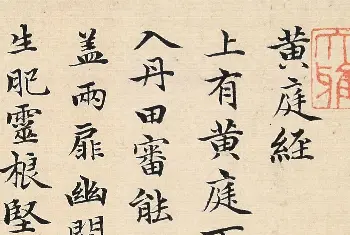 黄庭経
上有黄庭
入丹田審能
盖兩扉幽
生肥靈根堅